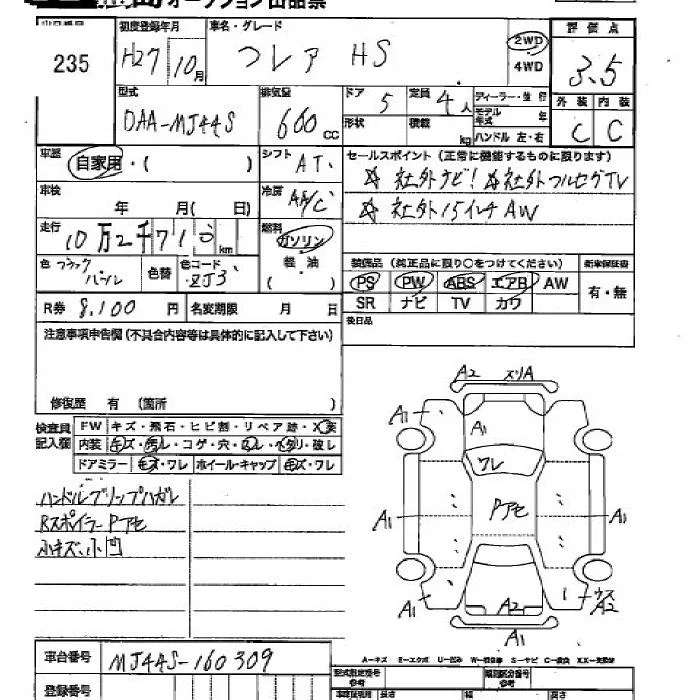 オークション出品票
初度登録年月 車名・グレード 評価点
235 H27 10月 フレア HS 2WD 4WD 3.5
型式 排気量 ドア 5 定員 4人 ディーラー・並行 外装 内装
DAA-MJ44S 660cc 形状 積載 kg モデル年式 年 C C
ハンドル 左・右
車歴 自家用・( ) シフト AT セールスポイント (正常に機能するものに限ります)
☆ 社外ナビ! ☆社外フルセグTV
車検 年 月( 日) 冷房 A/C ☆ 社外15インチAW
走行 10万2千71 km 燃料 ガソリン
軽油
( )
色 ブラックパール 色替 色コード ZJ3 装備品 (純正品に限り○をつけてください) 新車保証書
PS PW ABS エアB AW 有・無
R券 8,100円 名変期限 月 日 SR ナビ TV カワ
注意事項申告欄(不具合内容等は具体的に記入して下さい) 後日品
修復歴 有 (箇所 )
検査員記入欄 FW キズ・飛石・ヒビ割・リペア跡・X要
内装 キズ・汚レ・コゲ・穴・スレ・ヘタリ・破レ
ドアミラー キズ・ワレ ホイール・キャップ キズ・ワレ
ハンドルグリップハガレ
Rスポイラー Pアセ
小キズ、小凹
A2 スリA
A1 A1
ワレ
A1 Pアセ A1
A1 A2 ウスA2
A1
A-キズ E-エクボ U-凹み W-補修跡 S-サビ C-腐食 XX-交換済
車台番号 MJ44S-160309
登録番号
型式指定番号 参考 類別区分番号 参考
長さ 幅 高さ